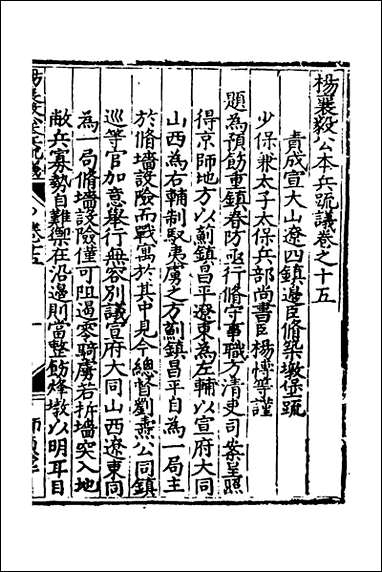 楊襄毅公本兵疏議卷之十五
責成宣大山遼四鎮邊臣脩築墩堡疏
少保兼太子太保兵部尚書臣楊博等謹
題為預飭重鎮春防亟行脩守事職方清吏司案呈照
得京師地方以薊鎮昌平遼東為左輔以宣府大同
山西為右輔制馭夷虜之方薊鎮昌平自為一局主
於脩墻設險而戰寓於其中見今總督劉燾公同鎮
巡等官加意舉行無容別議宣府大同山西遼東同
為一局脩墻設險僅可阻遏零騎虜若折墻突入地
敝兵寡勢自難禦在沿邊則當整飭烽墩以明耳目